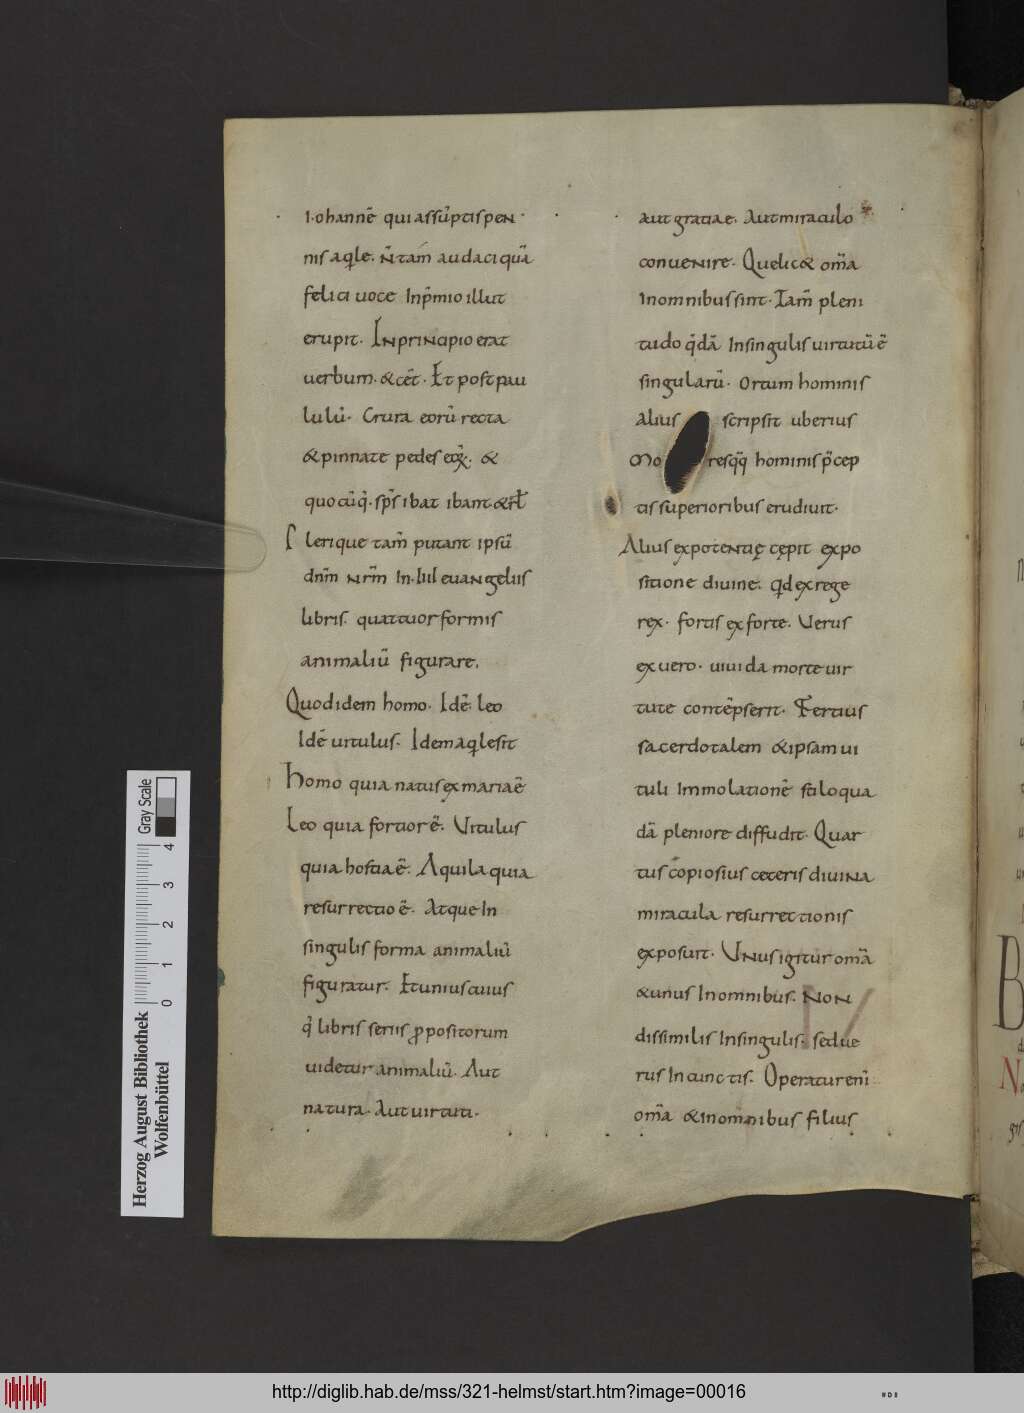 Iohannē qui assūptis pen
nis aqͥle. n̄ tam̄ audaci quā
felici uoce Inp̄mio illut
erupit. In principio erat
uerbum. & cet̄. Et post pau
lulū. Crura eorū recta
& pinnate pedes eoꝝ. &
quocūq̨. sp̄s ibat ibant & rl̄
Plerique tam̄ putant ipsū
dnm̄ nrm̄ In. IIII euangeliis
libris. quattuor formis
animaliū figurare.
Quod idem homo. Idē leo
Idē uitulus. Idem aqͥle sit
Homo quia natus ex maria ē
Leo quia fortior ē. Vitulus
quia hostia ē. Aquila quia
resurrectio ē. Atque In
singulis forma animaliū
figuratur. Et unius cuius
q̄ libris seriis ꝓpositorum
uidetur animaliū. Aut
natura. Aut uirtuti.
aut gratiae. Aut miraculo
conuenire. Que lic& om̄a
In omnibus sint. Tam̄ pleni
tudo q̄dā In singulis uirtutū ē
singularū. Ortum hominis
alius scripsit uberius
Mo resq̄q̄ hominis p̄cep
tis superioribus erudiuit.
Alius ex potentię cępit expo
sitione diuine. qd̄ ex rege
rex. fortis ex forte. Verus
ex uero. uiuida morte uir
tute contēpserit. Tertius
sacerdotalem & ipsam ui
tuli Immolationē stilo qua
dā pleniore diffudit. Quar
tus copiosius ceteris diuina
miracula resurrectionis
exposuit. Vnus igitur om̄a
& unus In omnibus. Non
dissimilis In singulis. sed ue
rus In cunctis. Operatur eni
om̄a & In omnibus filius
Herzog August Bibliothek
Wolfenbüttel
0 1 2 3 4
Gray Scale
http://diglib.hab.de/mss/321-helmst/start.htm?image=00016